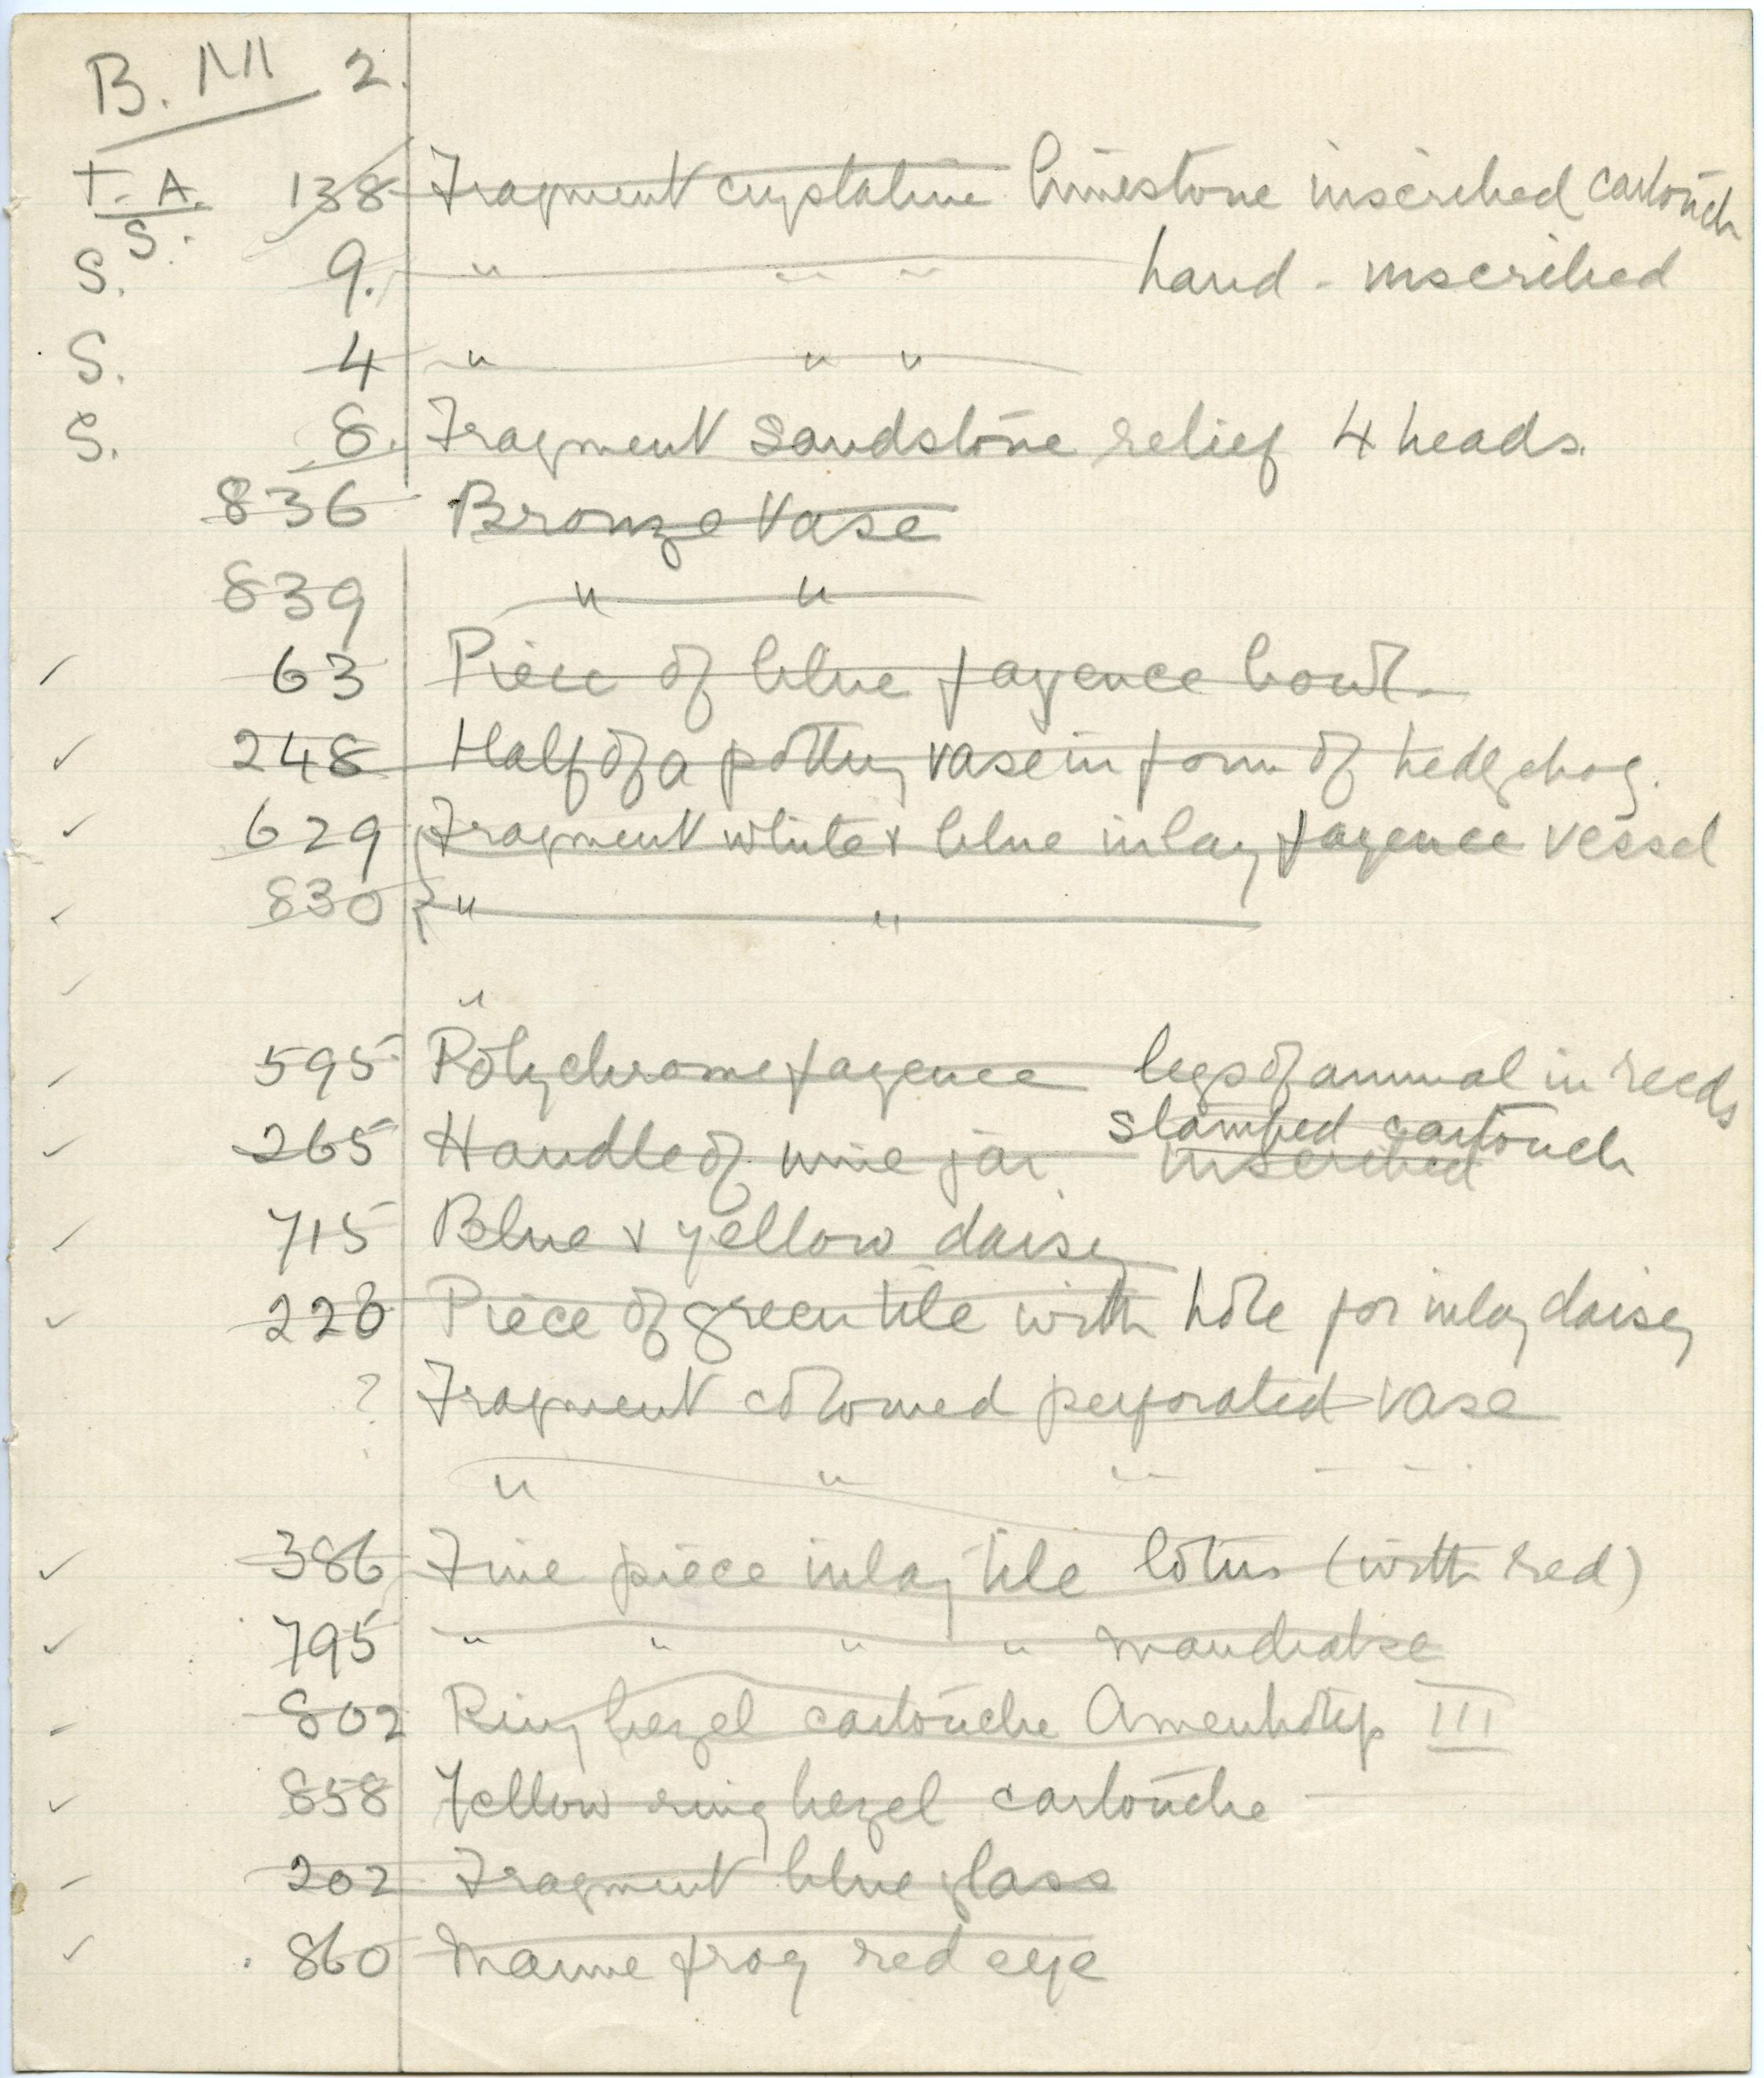 B. M 2.
T. A. 138 Fragment crystaline limestone inscribed cartouch
S.
S. 9. " " " hand - inscribed
S. 4 " " "
S. 8. Fragment sandstone relief 4 heads.
836 Bronze Vase
839 " "
✓ 63 Piece of blue fayence bowl.
✓ 248 Half of a pottery vase in form of hedgehog.
✓ 629 Fragment white & blue inlay fayence vessel
✓ 830 " "
✓ "
✓ 595 Polychrome fayence legs of animal in reeds
stamped cartouch
✓ 265 Handle of wine jar inscribed
✓ 715 Blue & yellow daisy
✓ 228 Piece of green tile with hole for inlay daisy
? Fragment coloured perforated vase
" " " " "
✓ 386 Fine piece inlay tile lotus (with red)
✓ 795 " " " " mandrake
✓ 802 Ring bezel cartouche Amenhotep III
✓ 858 Yellow ring bezel cartouche
✓ 202 Fragment blue glass
✓ 860 frog red eye